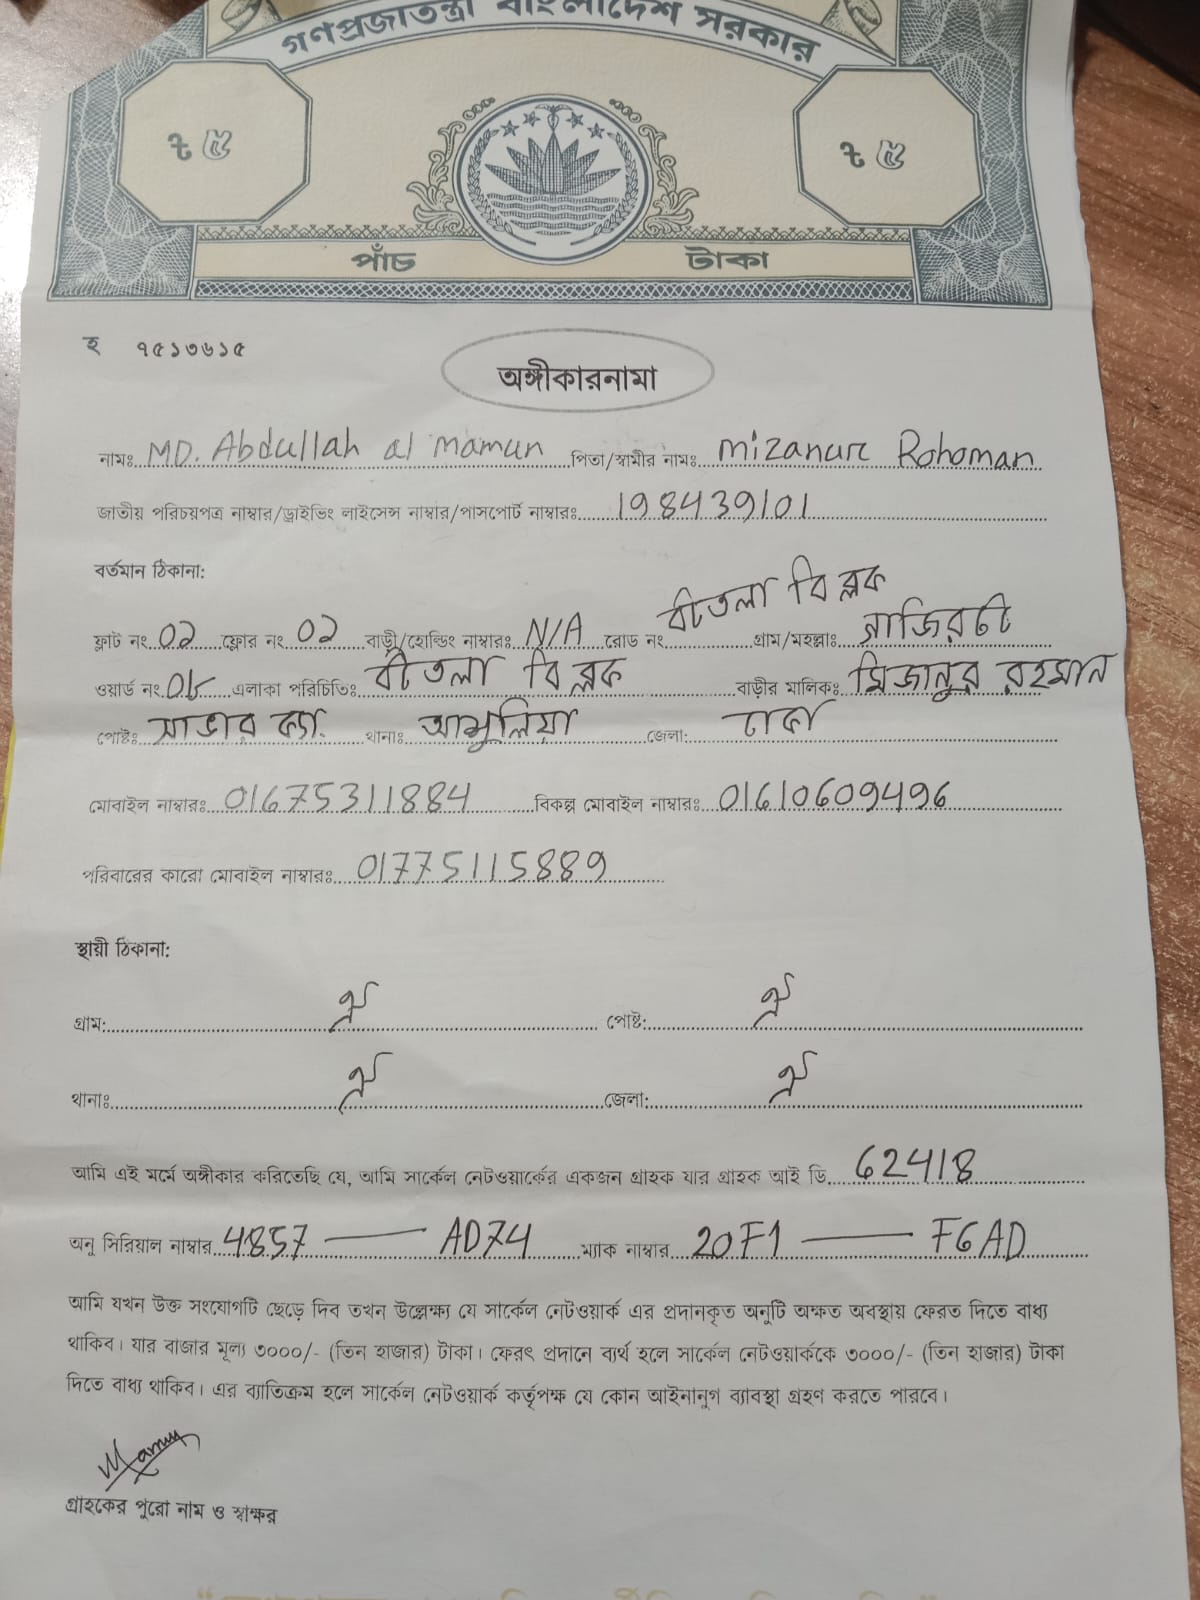 গণপ্রজাতন্ত্রী বাংলাদেশ সরকার
৳ ৫ ৳ ৫
পাঁচ টাকা
হ ৭৫১৩৬১৫
অঙ্গীকারনামা
নামঃ MD. Abdullah al mamun পিতা/স্বামীর নামঃ Mizanur Rohoman
জাতীয় পরিচয়পত্র নাম্বার/ড্রাইভিং লাইসেন্স নাম্বার/পাসপোর্ট নাম্বারঃ 198439101
বর্তমান ঠিকানা:
ফ্লাট নং 02 ফ্লোর নং 02 বাড়ী/হোল্ডিং নাম্বারঃ N/A রোড নং বটতলা বি ব্লক গ্রাম/মহল্লাঃ
ওয়ার্ড নং 08 এলাকা পরিচিতিঃ বটতলা বি ব্লক বাড়ীর মালিকঃ মিজানুর রহমান
পোষ্টঃ সাভার ক্যা. থানাঃ আশুলিয়া জেলা: ঢাকা
মোবাইল নাম্বারঃ 01675311884 বিকল্প মোবাইল নাম্বারঃ 01610609496
পরিবারের কারো মোবাইল নাম্বারঃ 01775115889
স্থায়ী ঠিকানা:
গ্রাম: ঐ পোষ্ট: ঐ
থানাঃ ঐ জেলা: ঐ
আমি এই মর্মে অঙ্গীকার করিতেছি যে, আমি সার্কেল নেটওয়ার্কের একজন গ্রাহক যার গ্রাহক আই ডি 62418
অনু সিরিয়াল নাম্বার 4857 — AD74 ম্যাক নাম্বার 20F1 — F6AD
আমি যখন উক্ত সংযোগটি ছেড়ে দিব তখন উল্লেক্ষ্য যে সার্কেল নেটওয়ার্ক এর প্রদানকৃত অনুটি অক্ষত অবস্থায় ফেরত দিতে বাধ্য
থাকিব। যার বাজার মূল্য ৩০০০/- (তিন হাজার) টাকা। ফেরৎ প্রদানে ব্যর্থ হলে সার্কেল নেটওয়ার্ককে ৩০০০/- (তিন হাজার) টাকা
দিতে বাধ্য থাকিব। এর ব্যাতিক্রম হলে সার্কেল নেটওয়ার্ক কর্তৃপক্ষ যে কোন আইনানুগ ব্যাবস্থা গ্রহণ করতে পারবে।
Mamun
গ্রাহকের পুরো নাম ও স্বাক্ষর